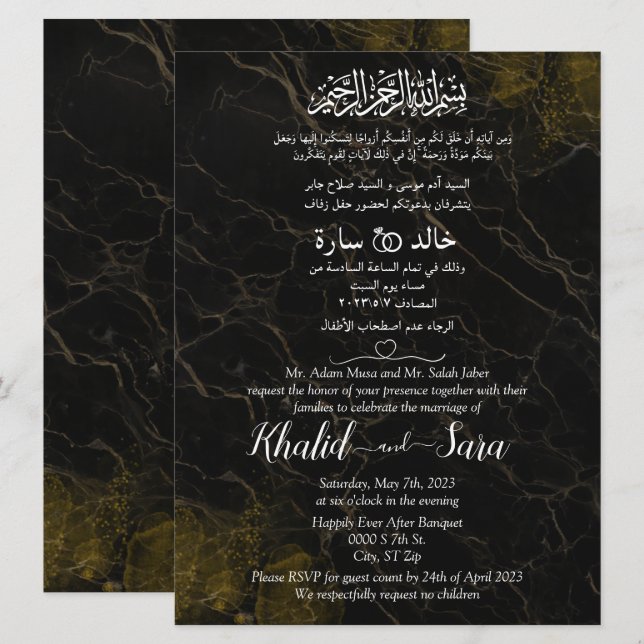 بسم الله الرحمن الرحيم
وَمِن آيَاتِهِ أَن خَلَقَ لَكُم مِن أَنفُسِكُم أَزواجًا لِتَسكُنوا إِلَيها وَجَعَلَ
بَينَكُم مَوَدَّةً وَرَحمَةً ۚ إِنَّ في ذٰلِكَ لَآيَاتٍ لِقَومٍ يَتَفَكَّرُونَ
السيد آدم موسى و السيد صلاح جابر
يتشرفان بدعوتكم لحضور حفل زفاف
خالد سارة
وذلك في تمام الساعة السادسة من
مساء يوم السبت
المصادف ٢٠٢٣\٥\٧
الرجاء عدم اصطحاب الأطفال
Mr. Adam Musa and Mr. Salah Jaber
request the honor of your presence together with their
families to celebrate the marriage of
Khalid and Sara
Saturday, May 7th, 2023
at six o'clock in the evening
Happily Ever After Banquet
0000 S 7th St.
City, ST Zip
Please RSVP for guest count by 24th of April 2023
We respectfully request no children